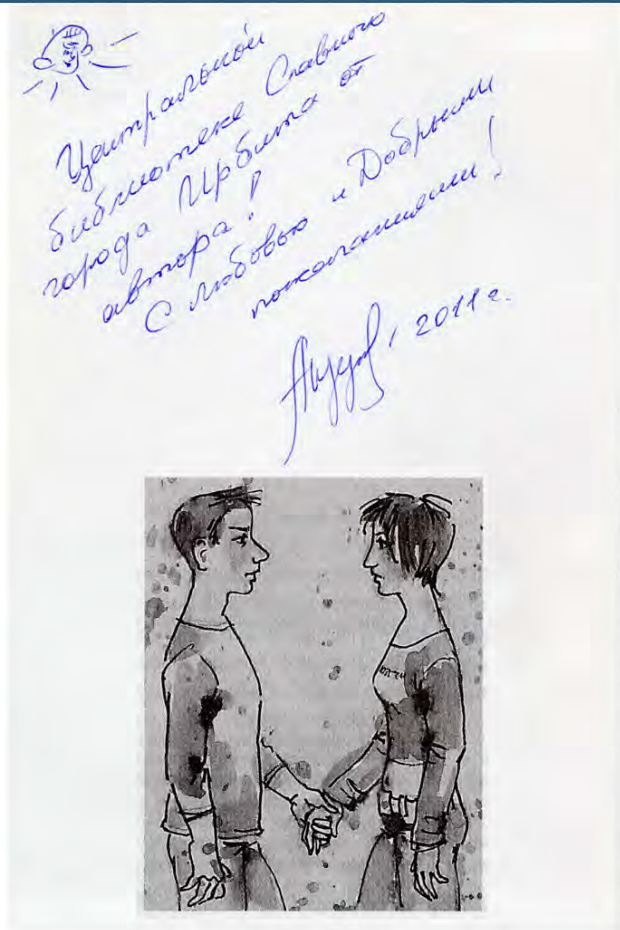 Центральной
библиотеке Славного
города Ирбита от
автора!
С любовью и Добрыми
пожеланиями!
2011 г.